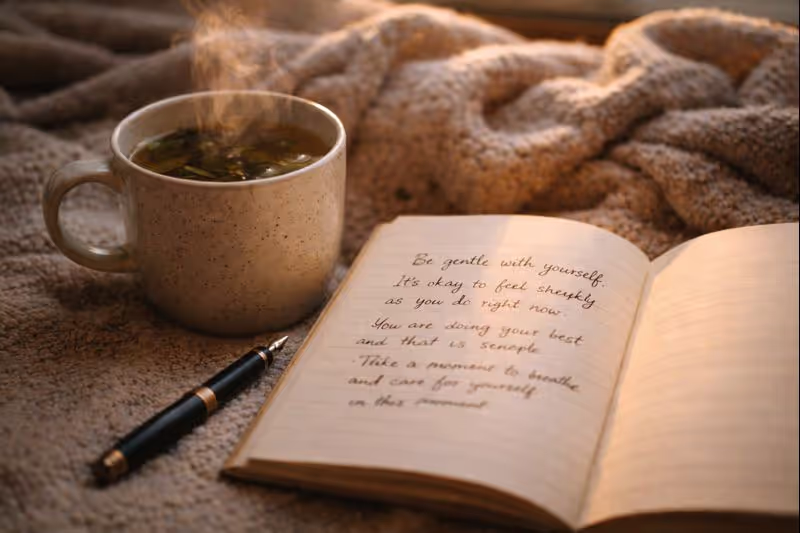 Be gentle with yourself.
It's okay to feel
as you do right now.
You are doing your best
and that is
a moment to breathe
and care for yourself